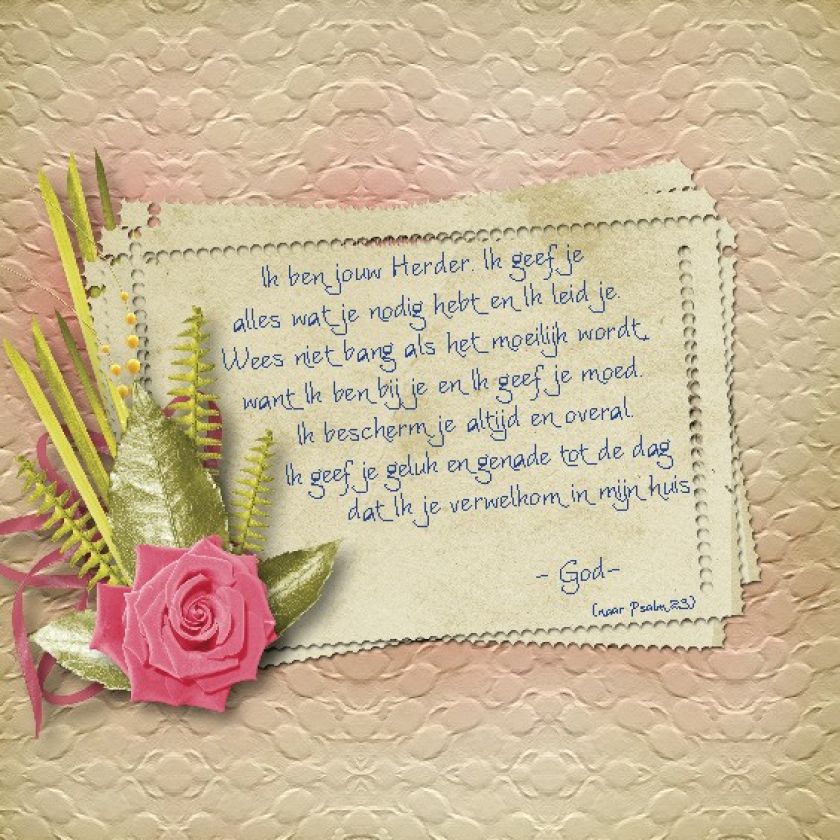 Ik ben jouw Herder. Ik geef je
alles wat je nodig hebt en Ik leid je.
Wees niet bang als het moeilijk wordt,
want Ik ben bij je en Ik geef je moed.
Ik bescherm je altijd en overal.
Ik geef je geluk en genade tot de dag
dat Ik je verwelkom in mijn huis
- God-
(naar Psalm 23)